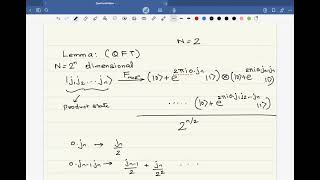 N = 2
Lemma: (QFT)
N = 2ⁿ dimensional
|j₁j₂...jₙ⟩ → (|0⟩ + e^{2πi0.jₙ} |1⟩) ⊗ (|0⟩ + e^{2πi0.jₙ₋₁jₙ} |1⟩)
product state
..... (|0⟩ + e^{2πi0.j₁j₂...jₙ} |1⟩)
2^{n/2}
0.jₙ → jₙ/2
0.jₙ₋₁jₙ → jₙ₋₁/2 + jₙ/2² ....